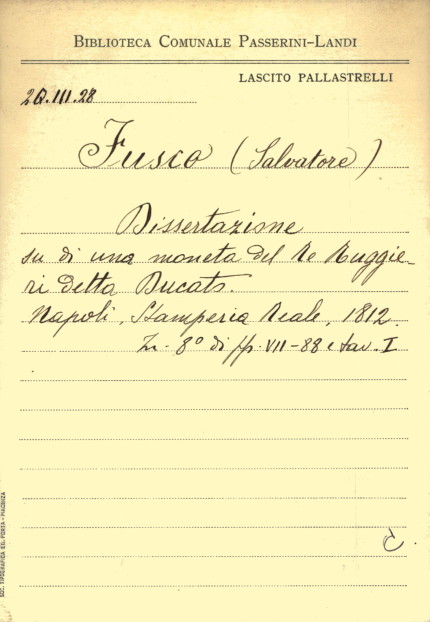 BIBLIOTECA COMUNALE PASSERINI-LANDI
LASCITO PALLASTRELLI
2Q.III.28
Fusco (Salvatore)
Dissertazione
su di una moneta del Re Ruggie-
ri detta Ducato.
Napoli, Stamperia Reale, 1812.
In- 8º di pp. VII-88 e tav. I
C.
SOC. TIPOGRAFICA ED. PORTA - PIACENZA